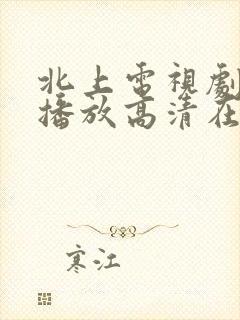 北上電視劇
播放高清在
寒江